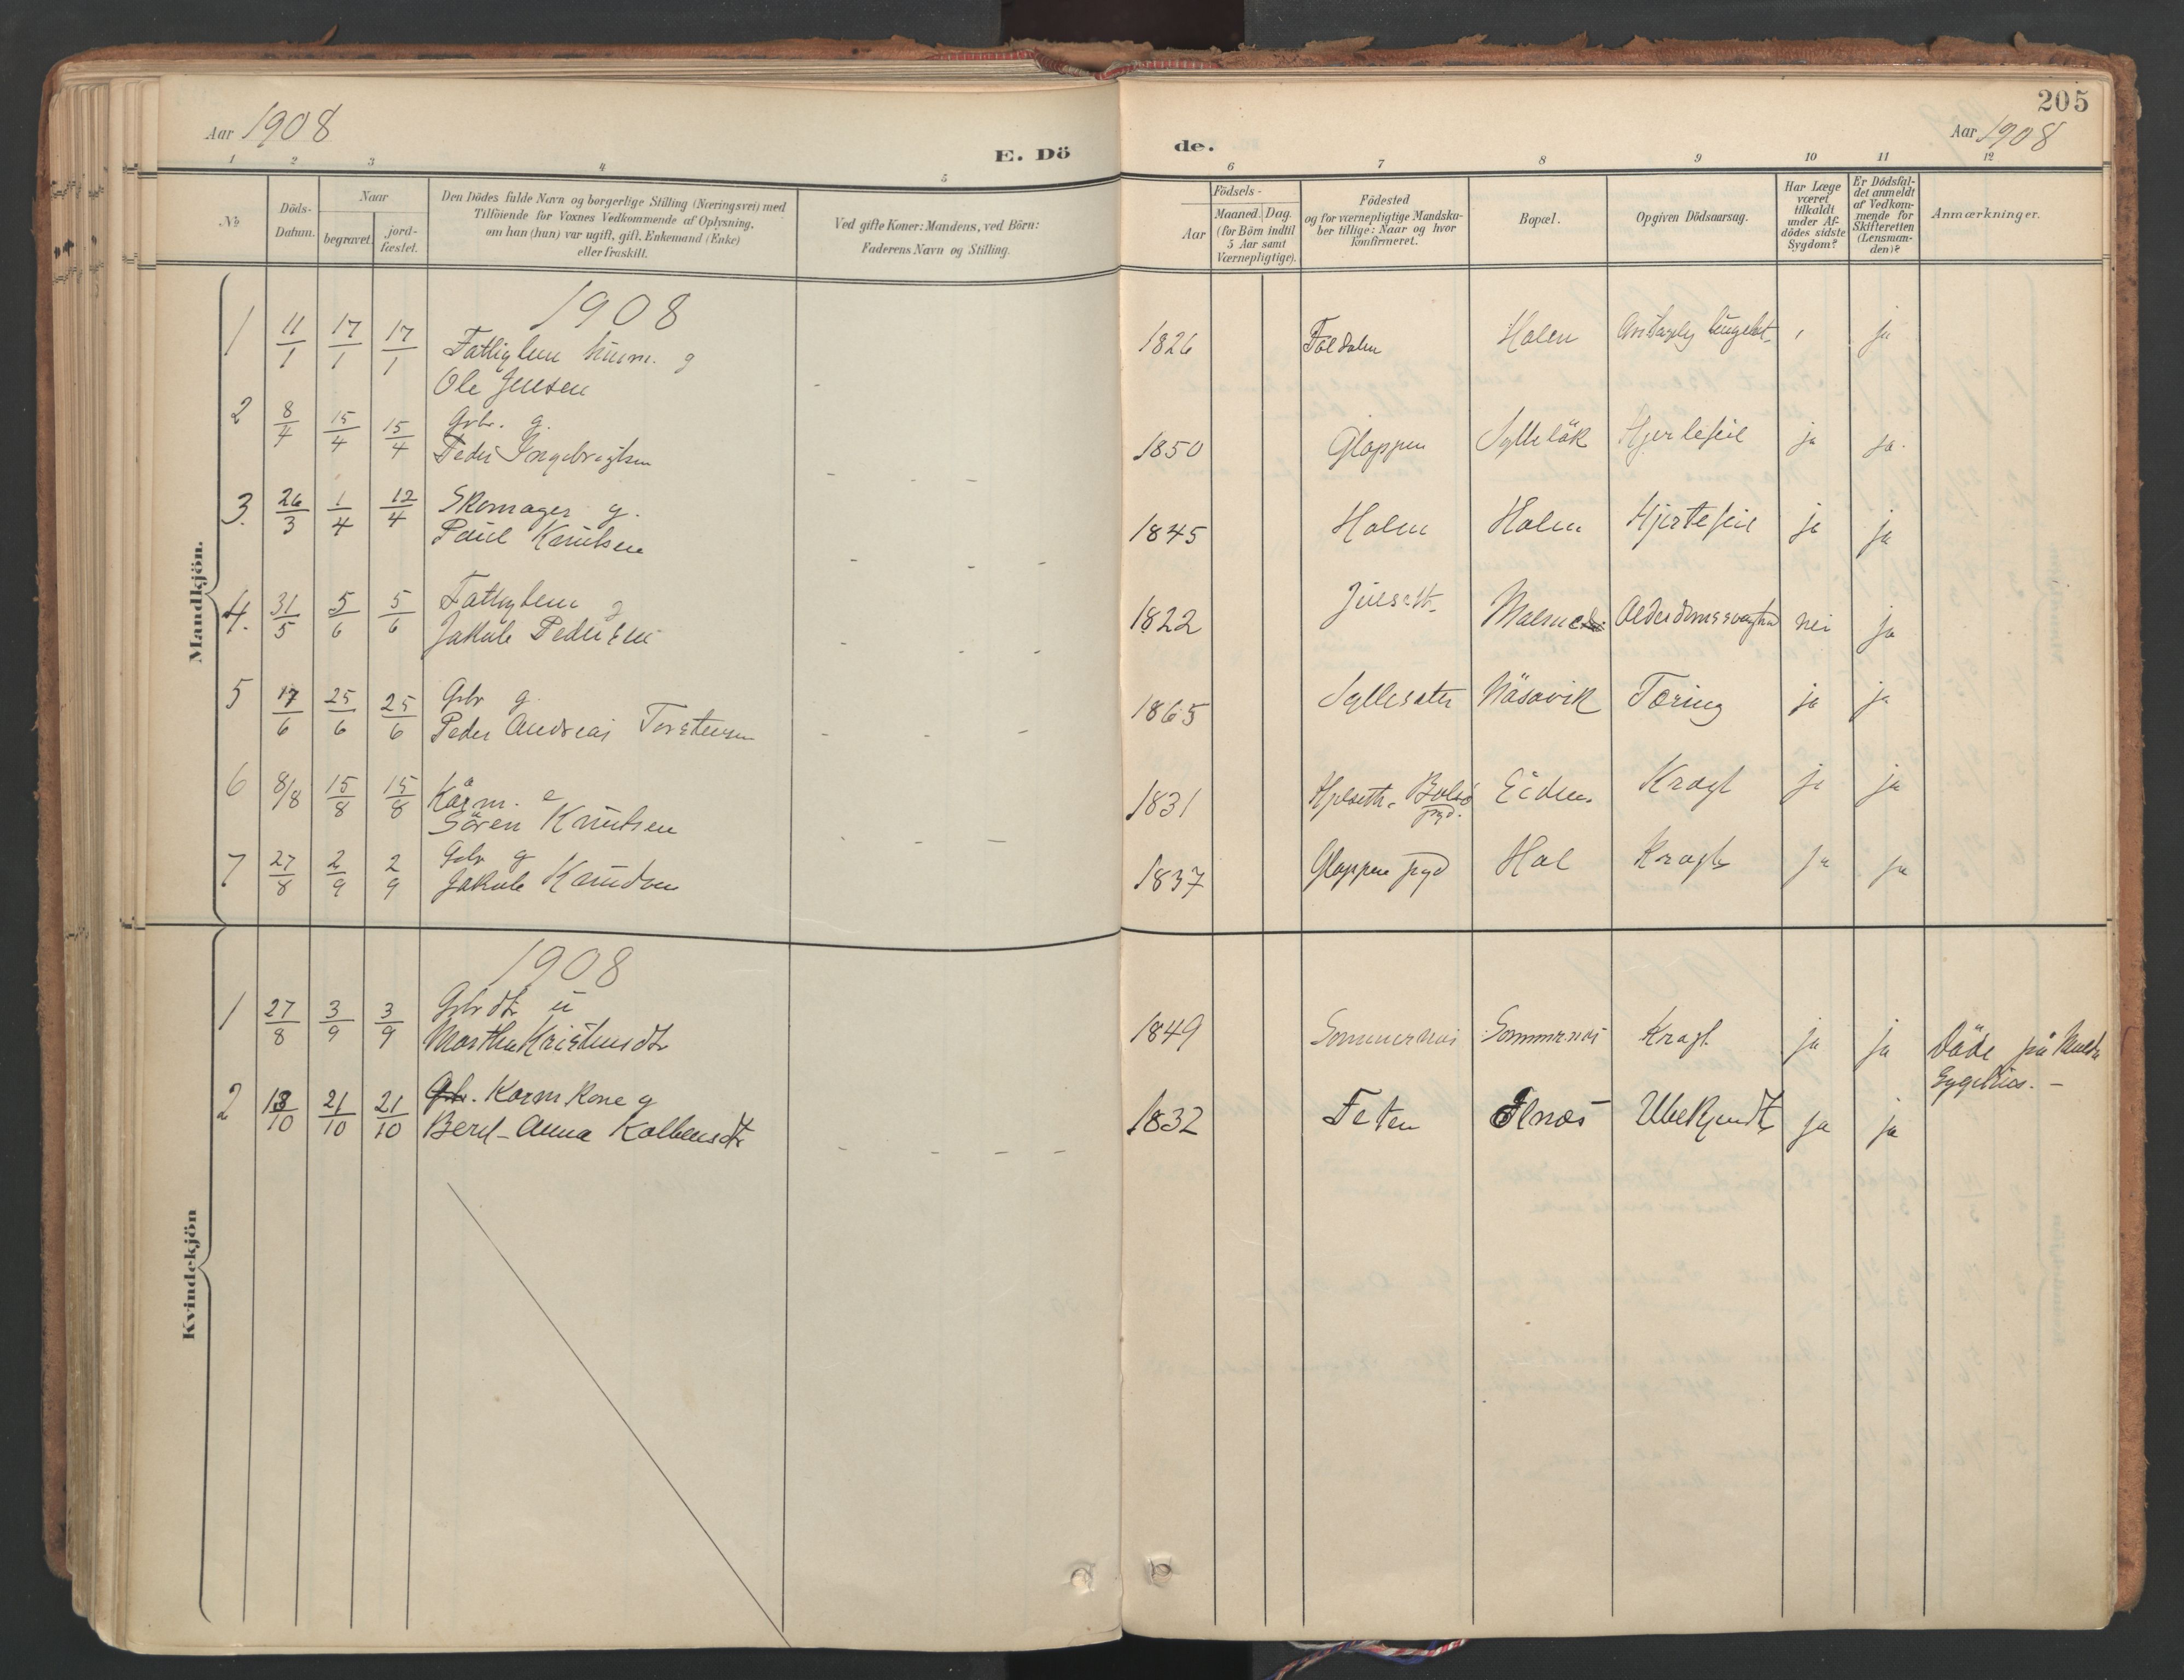 205
Aar 1908
Aar 1908
E. Dö
de.
1 2 3 4 5 6 7 8 9 10 11 12
No
Döds-
Datum.
Naar
begravet.
jord-
fæstet.
Den Dödes fulde Navn og borgerlige Stilling (Næringsvei) med
Tilföiende for Voxnes Vedkommende af Oplysning,
om han (hun) var ugift, gift, Enkemand (Enke)
eller fraskilt.
Ved gifte Koner: Mandens, ved Börn:
Faderens Navn og Stilling.
Födsels-
Aar
Maaned. Dag.
(for Börn indtil
5 Aar samt
Værnepligtige).
Födested
og for værnepligtige Mandska-
ber tillige: Naar og hvor
Konfirmeret.
Bopæl.
Opgiven Dödsaarsag.
Har Læge
været
tilkaldt
under Af-
dödes sidste
Sygdom?
Er Dödsfal-
det anmeldt
af Vedkom-
mende for
Skifteretten
(Lensman-
den)?
Anmærkninger.
Mandkjön.
1908
1 11/1 17/1 17/1 Fattiglem g
Ole Jensen - 1826 Holen ja
2 8/4 15/4 15/4 Gbr. g.
Peder Ingebrigtsen - - - 1850 Gloppen Hjertefeil ja ja.
3. 26/3 1/4 12/4 Skomager g.
Paul Knutsen - - - 1845 Holm Holm Hjertefeil ja ja
4. 31/5 5/6 5/6 Fattiglem g
Jakob Pedersen - - - 1822 Malme nei ja
5 17/6 25/6 25/6 Gbr g.
Peder Andreas Torstensen - - - 1865 Syllesæter Näsavik Tæring ja ja
6 8/8 15/8 15/8 Kårm. e
Sören Knutsen - - - 1831 Hjelseth. Bolsö pgd. Eiden. Kræft ja ja
7 27/8 2/9 2/9 Gbr g
Jakob Knudsen 1837 Gloppen pgd Hol Kræft ja ja
Kvindekjön
1908
1 27/8 3/9 3/9 Gbr dtr u
Martha Kristensdtr 1849 Sommernes Sommernes Kræft ja ja Döde på Molde
Sygehus. -
2 13/10 21/10 21/10 Gbr. Kårm kone g
Beret-Anna Kolbensdtr - - - - 1832 Feten Elnes Ubekjendt ja ja